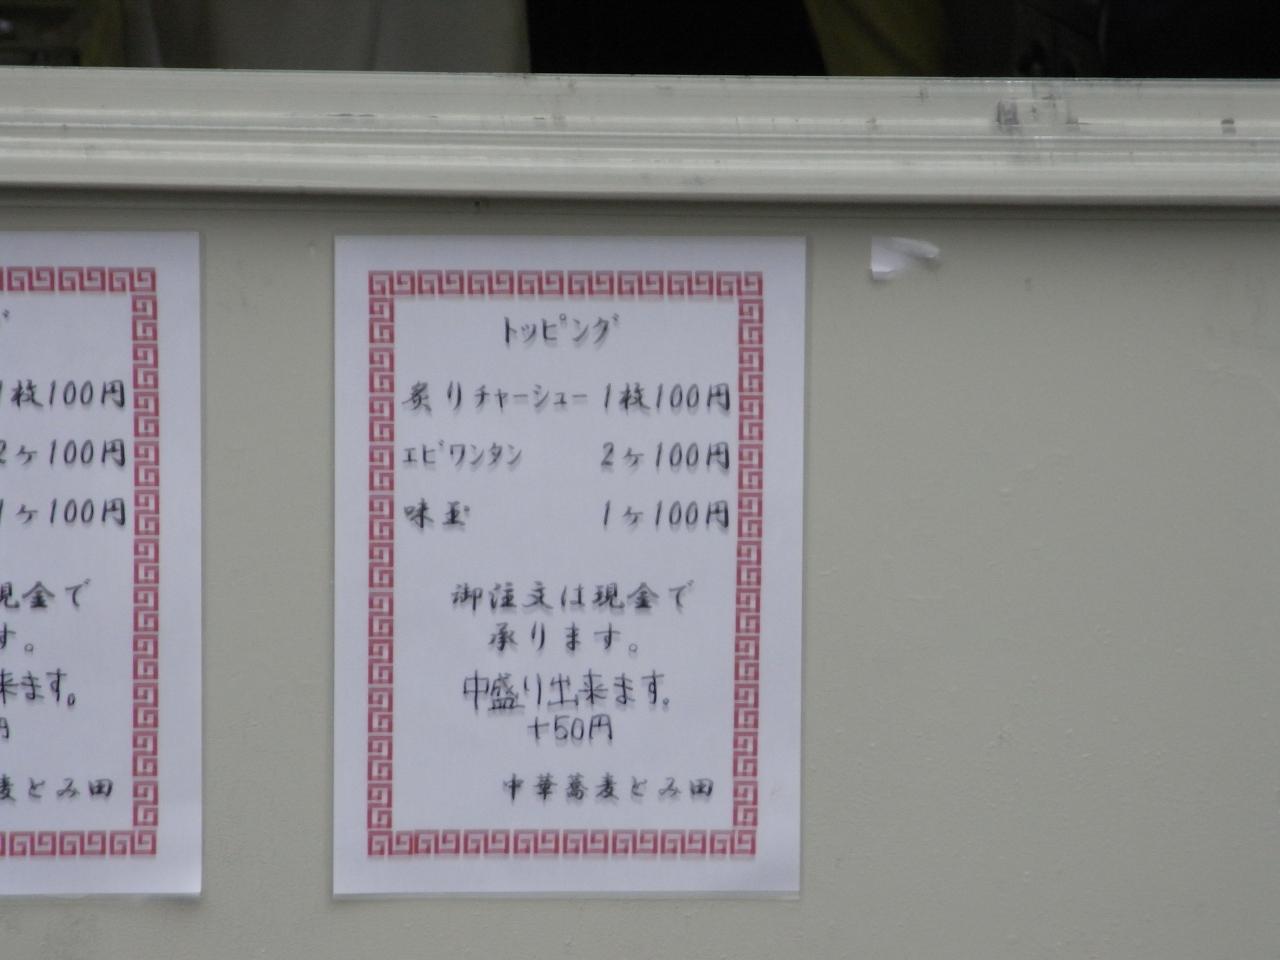 トッピング
炙りチャーシュー 1枚100円
エビワンタン 2ヶ100円
味玉 1ヶ100円
御注文は現金で
承ります。
中盛り出来ます。
+50円
中華蕎麦とみ田
1枚100円
2ヶ100円
1ヶ100円
現金で
す。
来ます。
円
麦とみ田